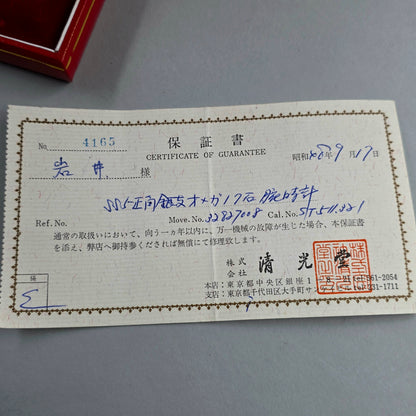 保証書
No. 4165
CERTIFICATE OF GUARANTEE
岩井 様
昭和48年9月17日
オメガ17石腕時計
Ref. No. Move. No. 32827008 Cal. No. ST.511.221
通常の取扱いにおいて、向う一ヵ年以内に、万一機械の故障が生じた場合、本保証書
を添え、弊店へ御持参くだされば無償にて修理致します。
株式
会社 清光堂
本店：東京都中央区銀座1 561-2054
支店：東京都千代田区大手町サン 231-1711
係